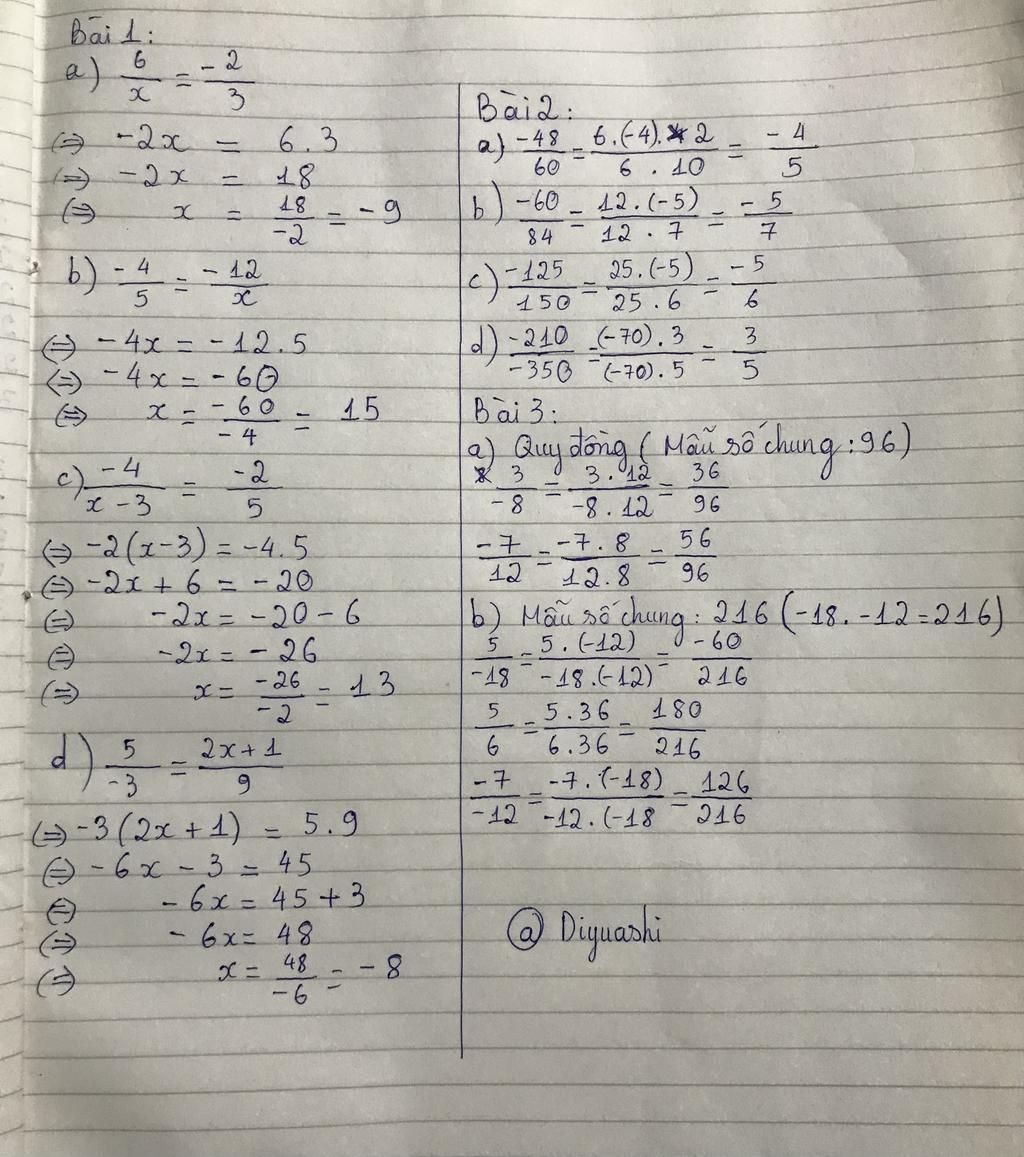 Bài 1:
a) 6/x = -2/3
⇔ -2x = 6.3
⇔ -2x = 18
⇔ x = 18/-2 = -9
b) -4/5 = -12/x
⇔ -4x = -12.5
⇔ -4x = -60
⇔ x = -60/-4 = 15
c) -4/x-3 = -2/5
⇔ -2(x-3) = -4.5
⇔ -2x + 6 = -20
⇔ -2x = -20 - 6
⇔ -2x = -26
⇔ x = -26/-2 = 13
d) 5/-3 = 2x+1/9
⇔ -3(2x+1) = 5.9
⇔ -6x - 3 = 45
⇔ -6x = 45 + 3
⇔ -6x = 48
⇔ x = 48/-6 = -8
Bài 2:
a) -48/60 = 6.(-4).2/6.10 = -4/5
b) -60/84 = 12.(-5)/12.7 = -5/7
c) -125/150 = 25.(-5)/25.6 = -5/6
d) -210/-350 = (-70).3/(-70).5 = 3/5
Bài 3:
a) Quy đồng (Mẫu số chung: 96)
3/-8 = 3.12/-8.12 = 36/96
-7/12 = -7.8/12.8 = 56/96
b) Mẫu số chung: 216 (-18.-12=216)
5/-18 = 5.(-12)/-18.(-12) = -60/216
5/6 = 5.36/6.36 = 180/216
-7/-12 = -7.(-18)/-12.(-18 = 126/216
@ Diyuashi